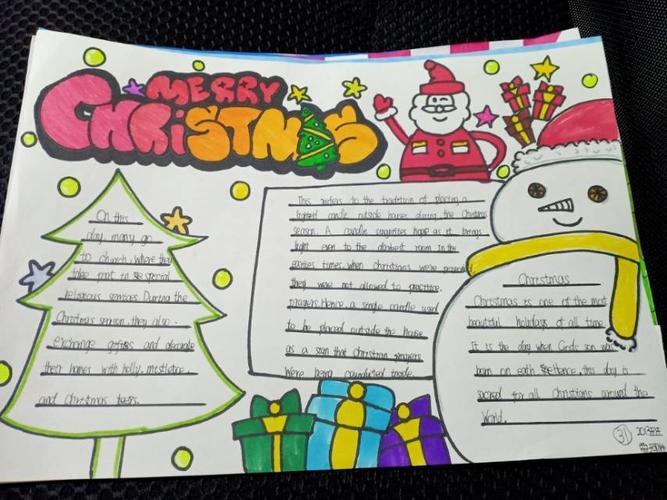 MERRY
CHRiSTMAS
On this
day many go
to church. Where they
take part in the special
religious services. During the
Christmas season, they also.
exchange and decorate
their homes with holly. mistletoe.
and Christmas trees.
This refers to the tradition of placing a
lighted candle outside homes during the Christmas
season. A candle hope as it brings
light even to the darkest room In the
times. when christians were
they were not allowed to practise.
prayers. Hence. a single candle used
to be placed outside the house
as a sign that Christian prayers
Were being inside.
Christmas
Christmas is one of the most
beautiful holidays of all time.
It is the day when God's son was
born on earth. Hence, this day is
sacred for all Christians around the
World.
31